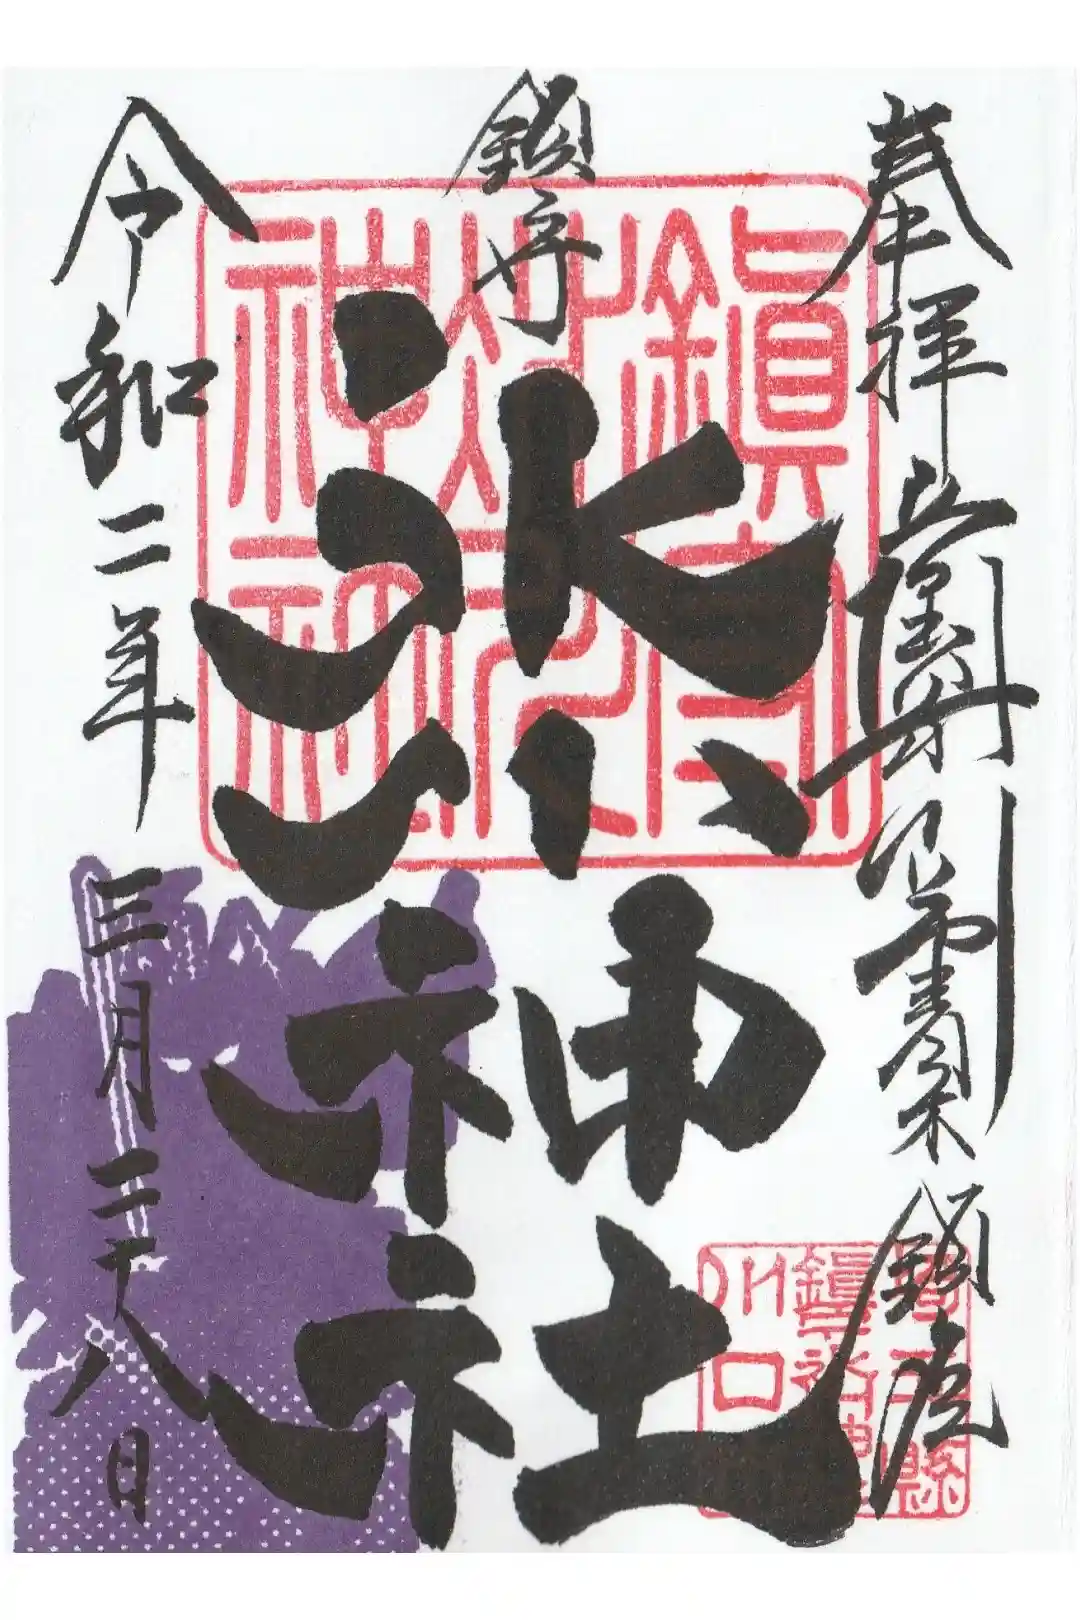 奉拝
鎮座
鎮守
氷川神社
令和二年三月二十八日
鎮守
氷川
神社
埼玉縣
鎮守氷川神社
川口